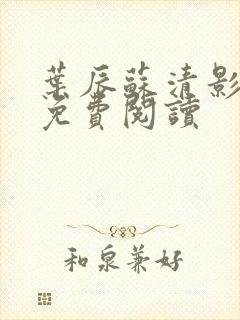 葉辰蘇清影
免費閱讀
和泉兼好